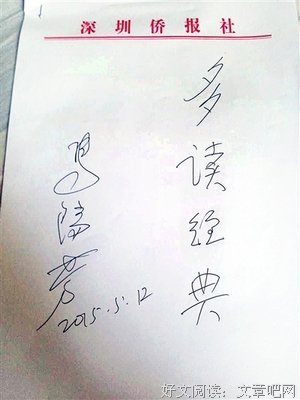 深圳侨报社
多读经典
2015.5.12
好文阅读：文章吧网